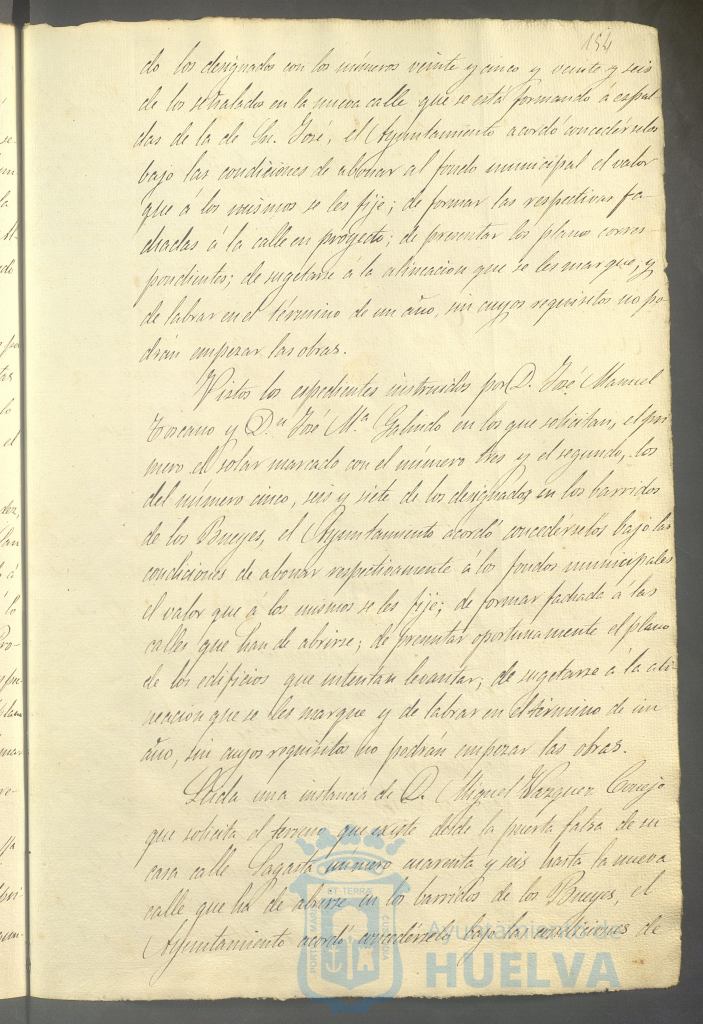 154
do los designados con los números veinte y cinco y veinte y seis
de los señalados en la nueva calle que se está formando á espal-
das de la de Sn. José, el Ayuntamiento acordó concedérselos
bajo las condiciones de abonar al fondo municipal el valor
que á los mismos se les fije; de formar las respectivas fa-
chadas á la calle en proyecto; de presentar los planos corres-
pondientes; de sugetarse á la alineacion que se les marque; y
de labrar en el término de un año, sin cuyos requisitos no po-
drán empezar las obras.
Vistos los espedientes instruidos por D. José Manuel
Toscano y Dn José Ma Galindo en los que solicitan, el pri-
mero el solar marcado con el número tres y el segundo, los
del número cinco, seis y siete de los designados en los barridos
de los Bueyes, el Ayuntamiento acordó concedérselos bajo las
condiciones de abonar respectivamente á los fondos municipales
el valor que á los mismos se les fije; de formar fachada á las
calles que han de abrirse; de presentar oportunamente el plano
de los edificios que intentan levantar; de sugetarse á la ali-
neacion que se les marque y de labrar en el término de un
año, sin cuyos requisitos no podrán empezar las obras.
Leida una instancia de D. Miguel Vazquez Conejo
que solicita el terreno que existe desde la puerta falsa de su
casa calle Sagasta número cuarenta y seis hasta la nueva
calle que ha de abrirse en los barridos de los Bueyes, el
Ayuntamiento acordó concedérselo bajo las condiciones de
Ayuntamiento de
HUELVA